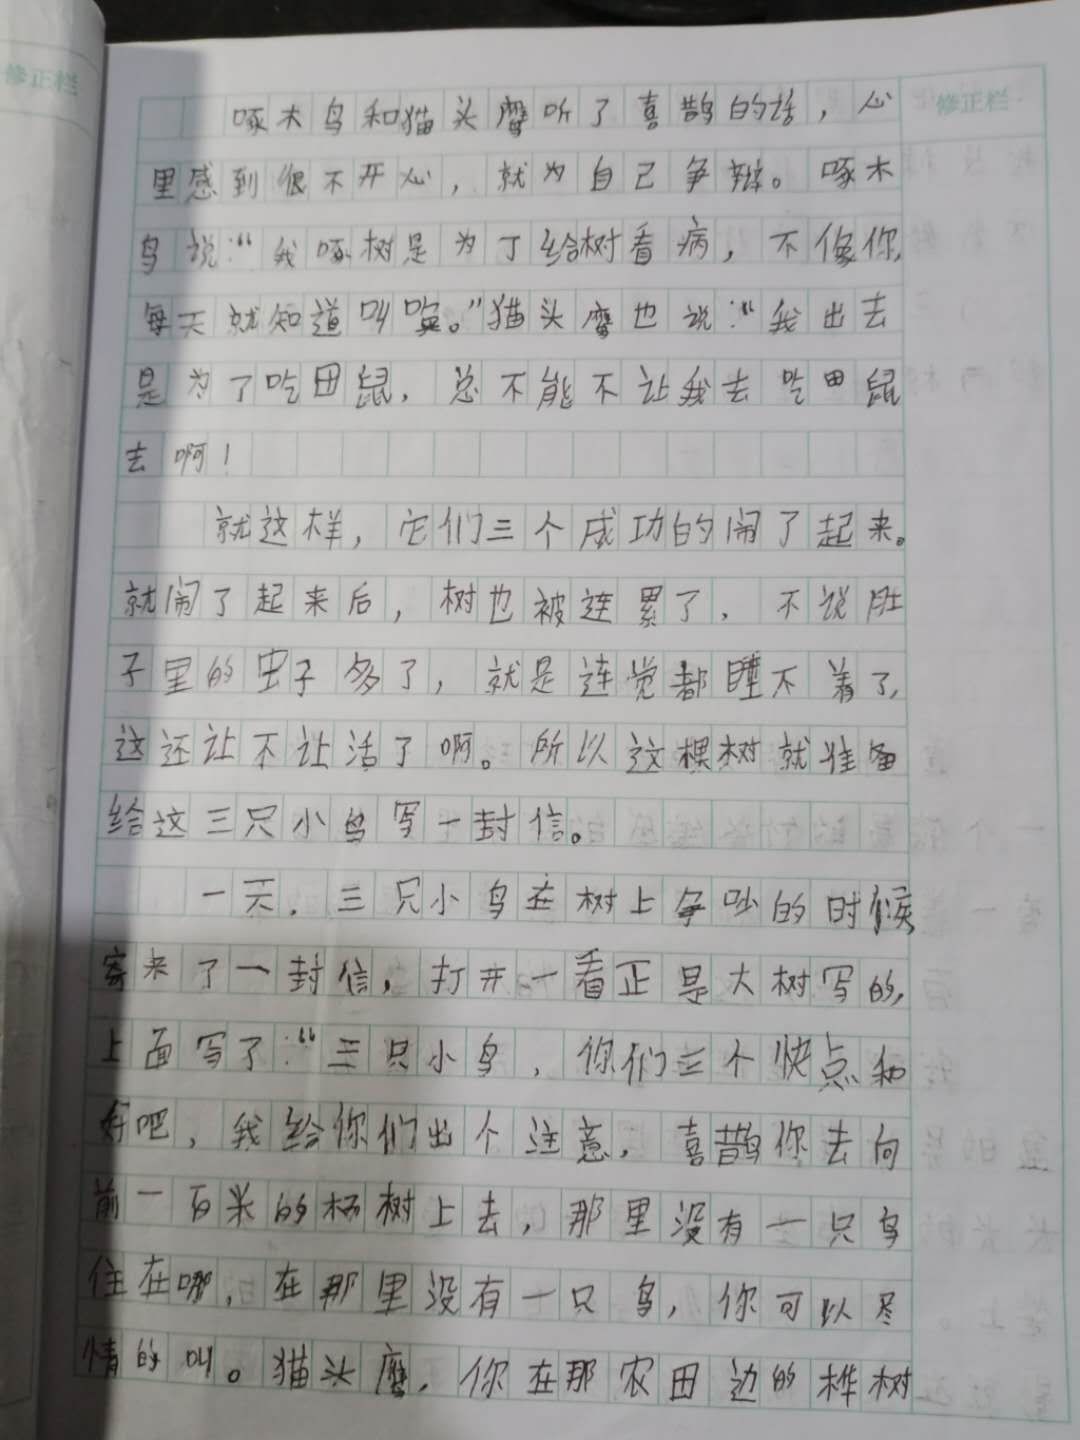 修正栏
修正栏
啄木鸟和猫头鹰听了喜鹊的话，心
里感到很不开心，就为自己争辩。啄木
鸟说：“我啄树是为了给树看病，不像你，
每天就知道叫唤。”猫头鹰也说：“我出去
是为了吃田鼠，总不能不让我去吃田鼠
去啊！
就这样，它们三个成功的闹了起来。
就闹了起来后，树也被连累了，不说肚
子里的虫子多了，就是连觉都睡不着了，
这还让不让活了啊。所以这棵树就准备
给这三只小鸟写一封信。
一天，三只小鸟在树上争吵的时候
寄来了一封信，打开一看正是大树写的，
上面写了：“三只小鸟，你们三个快点和
好吧，我给你们出个注意，喜鹊你去向
前一百米的杨树上去，那里没有一只鸟
住在哪，在那里没有一只鸟，你可以尽
情的叫。猫头鹰，你在那农田边的桦树